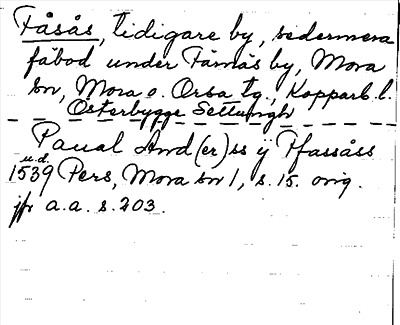 Fåsås, tidigare by, sedermera
fäbod under Färnäs by, Mora
sn, Mora o. Orsa tg., Kopparb. l.
Österbygge Settungh
Paual And(er)ss ij Ffassåss
u.d.
1539 Pers, Mora sn 1, s. 15. orig.
jfr a.a. s. 203.